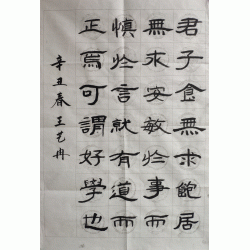 君子食無求飽居
無求安敏於事而
慎於言就有道而
正焉可謂好學也
辛丑春王艺冉